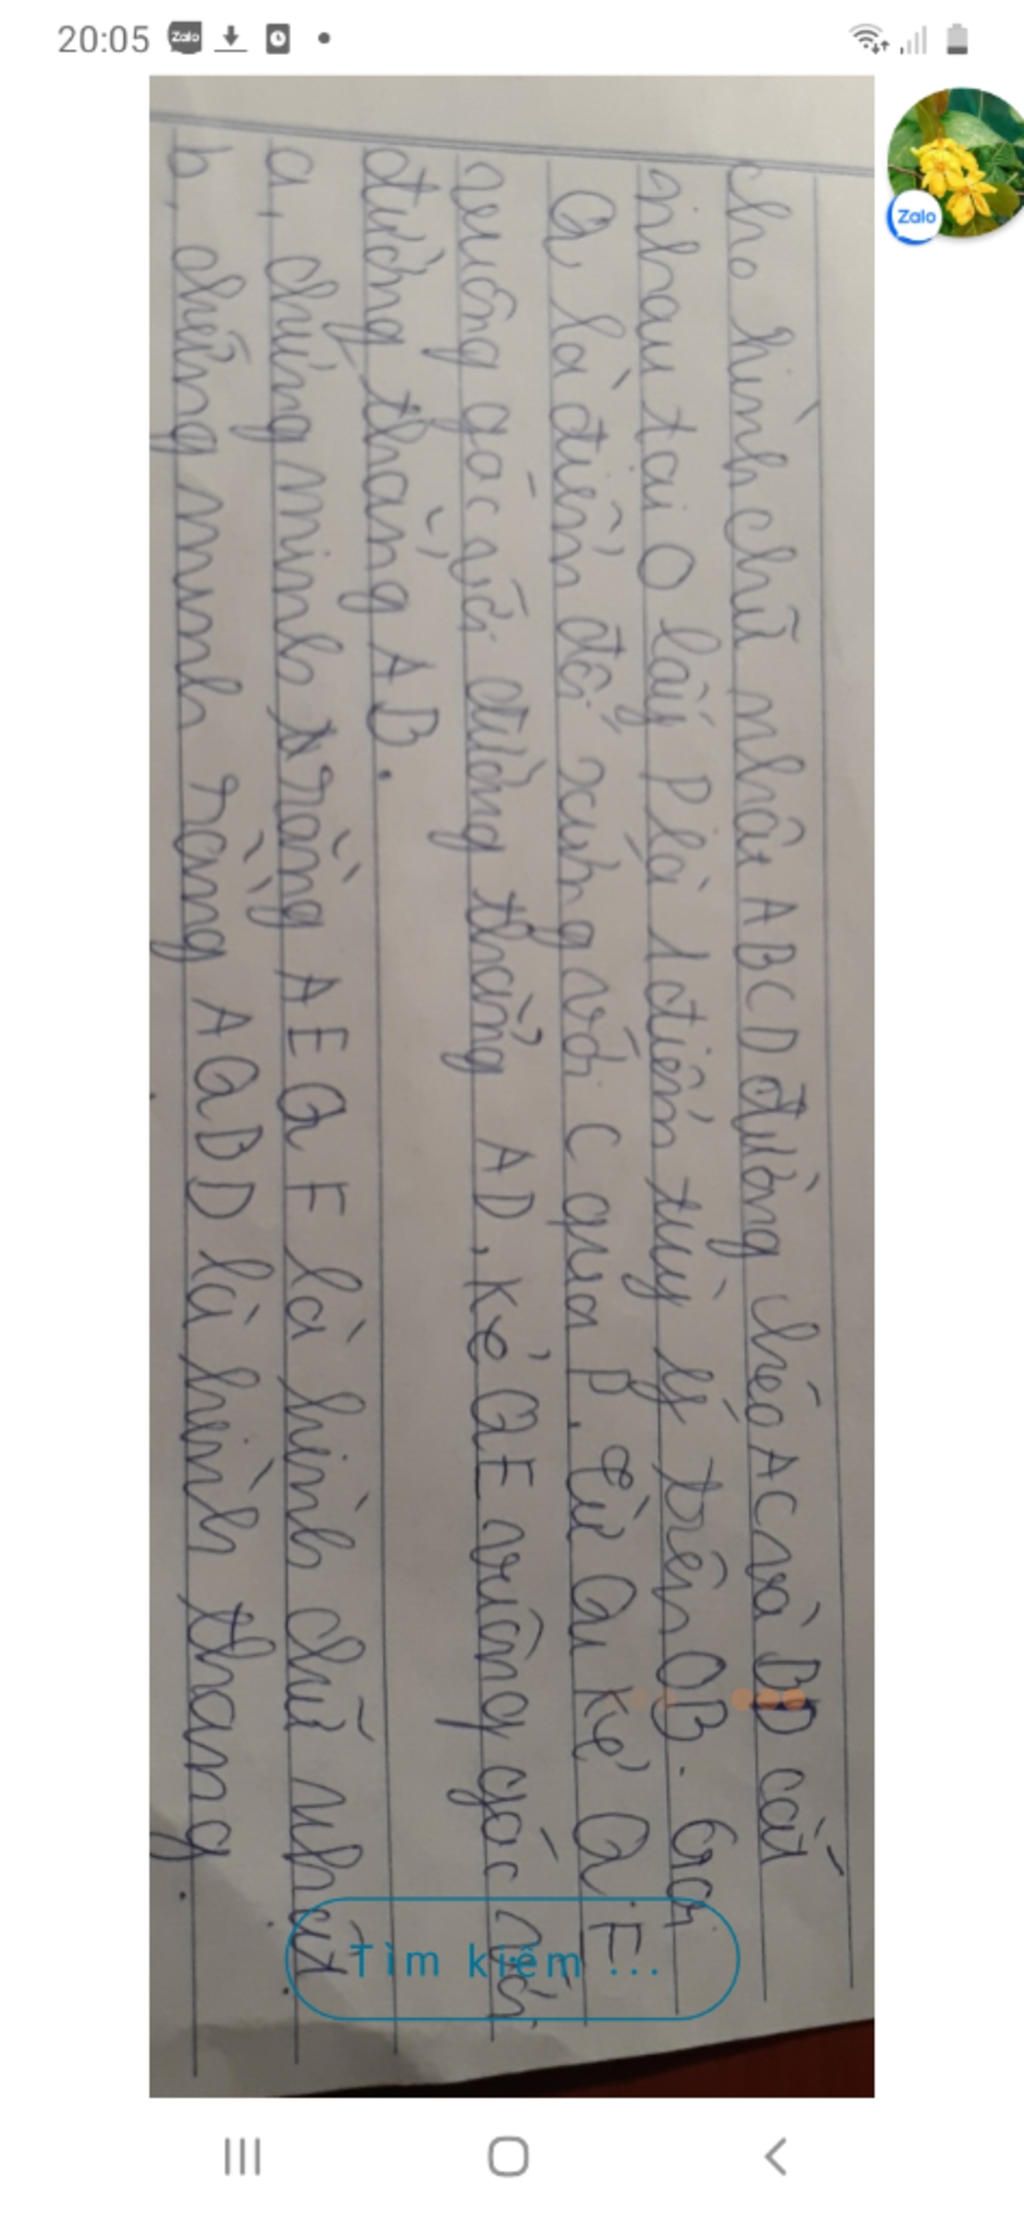 20:05 Zalo
Zalo
cho hình chữ nhật ABCD đường chéo AC và BD cắt
nhau tại O lấy P là 1 điểm tuỳ ý trên OB. Gọi
Q là điểm đối xứng với C qua P. từ Q kẻ QE
vuông góc với đường thẳng AD, kẻ QF vuông góc với
đường thẳng AB.
a, chứng minh rằng AEQF là hình chữ nhật.
b, chứng minh rằng AQBD là hình thang.
Tìm kiếm ...